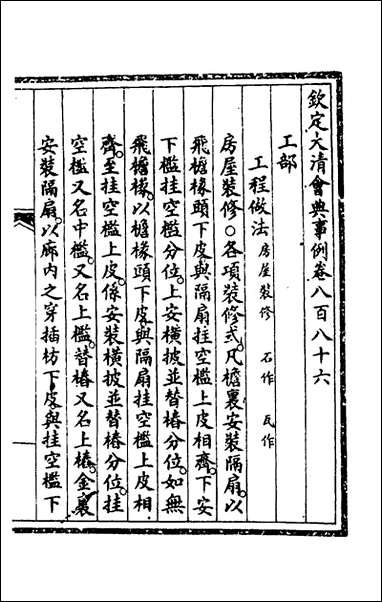 欽定大清會典事例卷八百八十六
工部
工程做法房屋裝修 石作 瓦作
房屋裝修○各項裝修式凡檐裏安裝隔扇以
飛檐椽頭下皮與隔扇挂空檻上皮相齊下安
下檻挂空檻分位上安橫披並替樁分位如無
飛檐椽以檐椽頭下皮與隔扇挂空檻上皮相
齊至挂空檻上皮係安裝橫披並替樁分位挂
空檻又名中檻又名上檻替樁又名上樁金裏
安裝隔扇以廊內之穿插枋下皮與挂空檻下